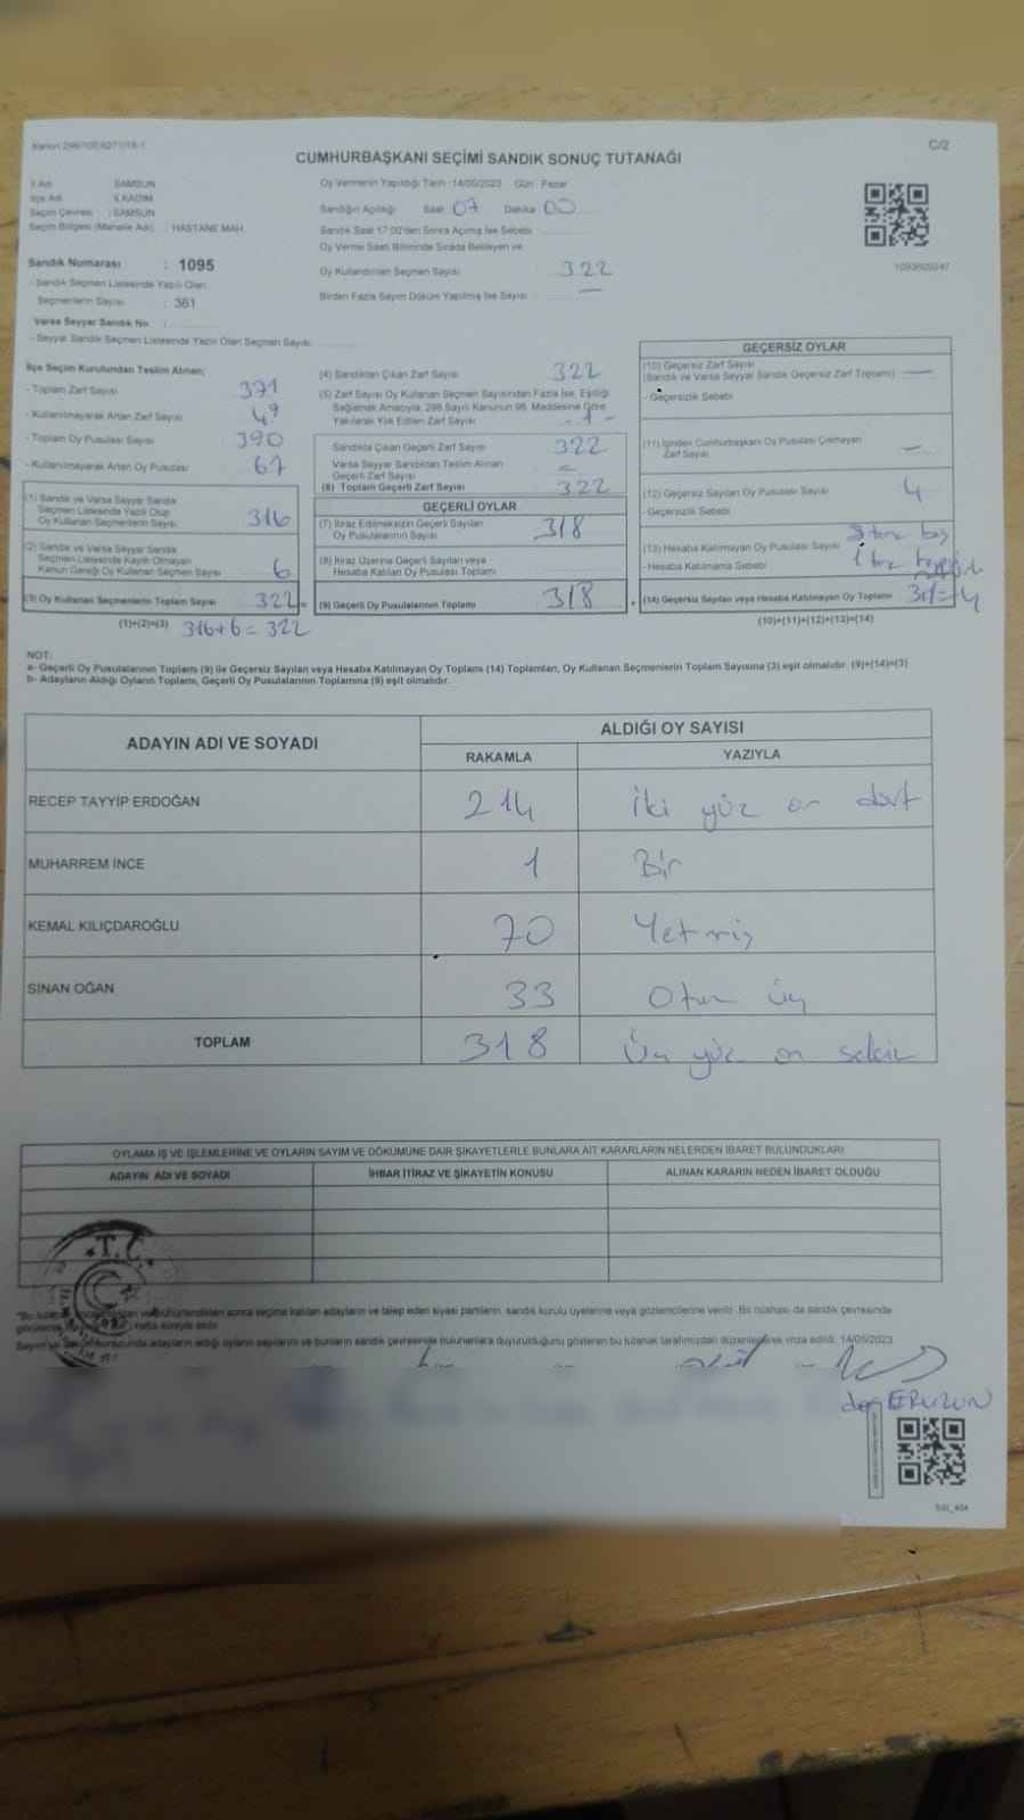 C/2
CUMHURBAŞKANI SEÇİMİ SANDIK SONUÇ TUTANAĞI
İl Adı : SAMSUN
İlçe Adı : İLKADIM
Seçim Çevresi : SAMSUN
Seçim Bölgesi (Mahalle Adı) : HASTANE MAH.
Sandık Numarası : 1095
- Sandık Seçmen Listesinde Yazılı Olan
Seçmenlerin Sayısı : 361
Varsa Seyyar Sandık No :
- Seyyar Sandık Seçmen Listesinde Yazılı Olan Seçmen Sayısı
Oy Vermenin Yapıldığı Tarih : 14/05/2023 Gün : Pazar
Sandığın Açıldığı Saat 07 Dakika 00
Sandık Saat 17:00'den Sonra Açılmış İse Sebebi
Oy Verme Saati Bitiminde Sırada Bekleyen ve
Oy Kullandırılan Seçmen Sayısı 322
Birden Fazla Sayım Döküm Yapılmış İse Sayısı —
İlçe Seçim Kurulundan Teslim Alınan;
- Toplam Zarf Sayısı 371
- Kullanılmayarak Artan Zarf Sayısı 49
- Toplam Oy Pusulası Sayısı 390
- Kullanılmayarak Artan Oy Pusulası 67
(1) Sandık ve Varsa Seyyar Sandık
Seçmen Listesinde Yazılı Olup
Oy Kullanan Seçmenlerin Sayısı 316
(2) Sandık ve Varsa Seyyar Sandık
Seçmen Listesinde Kayıtlı Olmayan
Kanun Gereği Oy Kullanan Seçmen Sayısı 6
(3) Oy Kullanan Seçmenlerin Toplam Sayısı 322
(1)+(2)=(3) 316+6=322
(4) Sandıktan Çıkan Zarf Sayısı 322
(5) Zarf Sayısı Oy Kullanan Seçmen Sayısından Fazla İse, Eşitliği
Sağlamak Amacıyla, 298 Sayılı Kanunun 98. Maddesine Göre
Yakılarak Yok Edilen Zarf Sayısı
Sandıkta Çıkan Geçerli Zarf Sayısı 322
Varsa Seyyar Sandıktan Teslim Alınan
Geçerli Zarf Sayısı —
(6) Toplam Geçerli Zarf Sayısı 322
GEÇERLİ OYLAR
(7) İtiraz Edilmeksizin Geçerli Sayılan
Oy Pusulalarının Sayısı 318
(8) İtiraz Üzerine Geçerli Sayılan veya
Hesaba Katılan Oy Pusulası Toplamı
(9) Geçerli Oy Pusulalarının Toplamı 318
GEÇERSİZ OYLAR
(10) Geçersiz Zarf Sayısı
(Sandık ve Varsa Seyyar Sandık Geçersiz Zarf Toplamı) —
- Geçersizlik Sebebi
(11) İçinden Cumhurbaşkanı Oy Pusulası Çıkmayan
Zarf Sayısı —
(12) Geçersiz Sayılan Oy Pusulası Sayısı 4
- Geçersizlik Sebebi
(13) Hesaba Katılmayan Oy Pusulası Sayısı
- Hesaba Katılmama Sebebi
(14) Geçersiz Sayılan veya Hesaba Katılmayan Oy Toplamı 3+1=4
(10)+(11)+(12)+(13)=(14)
NOT:
a- Geçerli Oy Pusulalarının Toplamı (9) ile Geçersiz Sayılan veya Hesaba Katılmayan Oy Toplamı (14) Toplamları, Oy Kullanan Seçmenlerin Toplam Sayısına (3) eşit olmalıdır. (9)+(14)=(3)
b- Adayların Aldığı Oyların Toplamı, Geçerli Oy Pusulalarının Toplamına (9) eşit olmalıdır.
ADAYIN ADI VE SOYADI
ALDIĞI OY SAYISI
RAKAMLA YAZIYLA
RECEP TAYYİP ERDOĞAN 214 iki yüz on dört
MUHARREM İNCE 1 Bir
KEMAL KILIÇDAROĞLU 70 Yetmiş
SİNAN OĞAN 33 Otuz üç
TOPLAM 318 Üç yüz on sekiz
OYLAMA İŞ VE İŞLEMLERİNE VE OYLARIN SAYIM VE DÖKÜMÜNE DAİR ŞİKAYETLERLE BUNLARA AİT KARARLARIN NELERDEN İBARET BULUNDUKLARI
ADAYIN ADI VE SOYADI İHBAR İTİRAZ VE ŞİKAYETİN KONUSU ALINAN KARARIN NEDEN İBARET OLDUĞU
T.C.
sonra seçime katılan adayların ve talep eden siyasi partilerin, sandık kurulu üyelerine veya gözlemcilerine verilir. Bu nüshası da sandık çevresinde
adayların aldığı oyların sayılarını ve bunların sandık çevresinde bulunanlara duyurulduğunu gösteren bu tutanak tarafımızdan düzenlenerek imza edildi. 14/05/2023